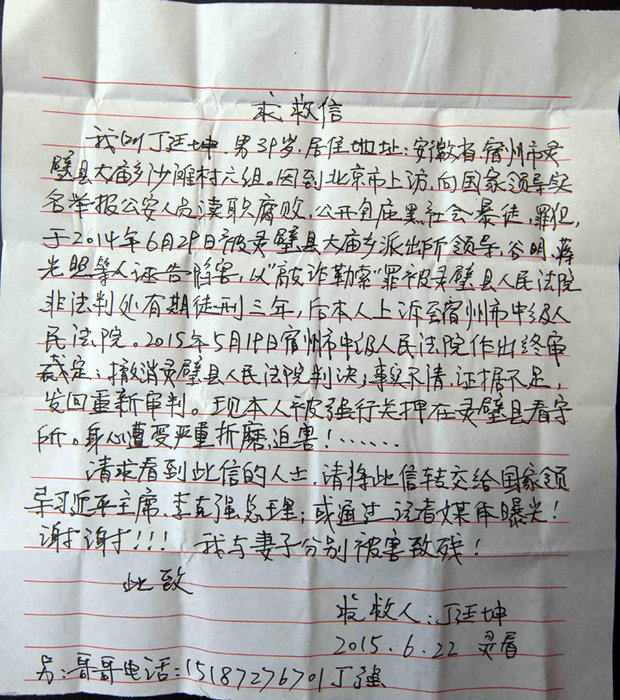 求救信
我叫丁廷坤,男39岁,居住地址:安徽省宿州市灵
璧县大庙乡沙滩村六组。因到北京市上访,向国家领导实
名举报公安人员渎职腐败,公开包庇黑社会暴徒,罪犯,
于2014年6月29日被灵璧县大庙乡派出所领导,谷明,蒋
光照等人诬告陷害,以“敲诈勒索”罪被灵璧县人民法院
非法判处有期徒刑三年,后本人上诉至宿州市中级人
民法院。2015年5月19日宿州市中级人民法院作出终审
裁定:撤消灵璧县人民法院判决,事实不清,证据不足,
发回重新审判。现本人被强行关押在灵璧县看守
所。身心遭受严重折磨,迫害!……
请求看到此信的人士,请将此信转交给国家领
导习近平主席,李克强总理;或通过记者媒体曝光!
谢谢!!! 我与妻子分别被害致残!
此致
求救人:丁廷坤
2015.6.22 灵看
另:哥哥电话:15187276701丁强